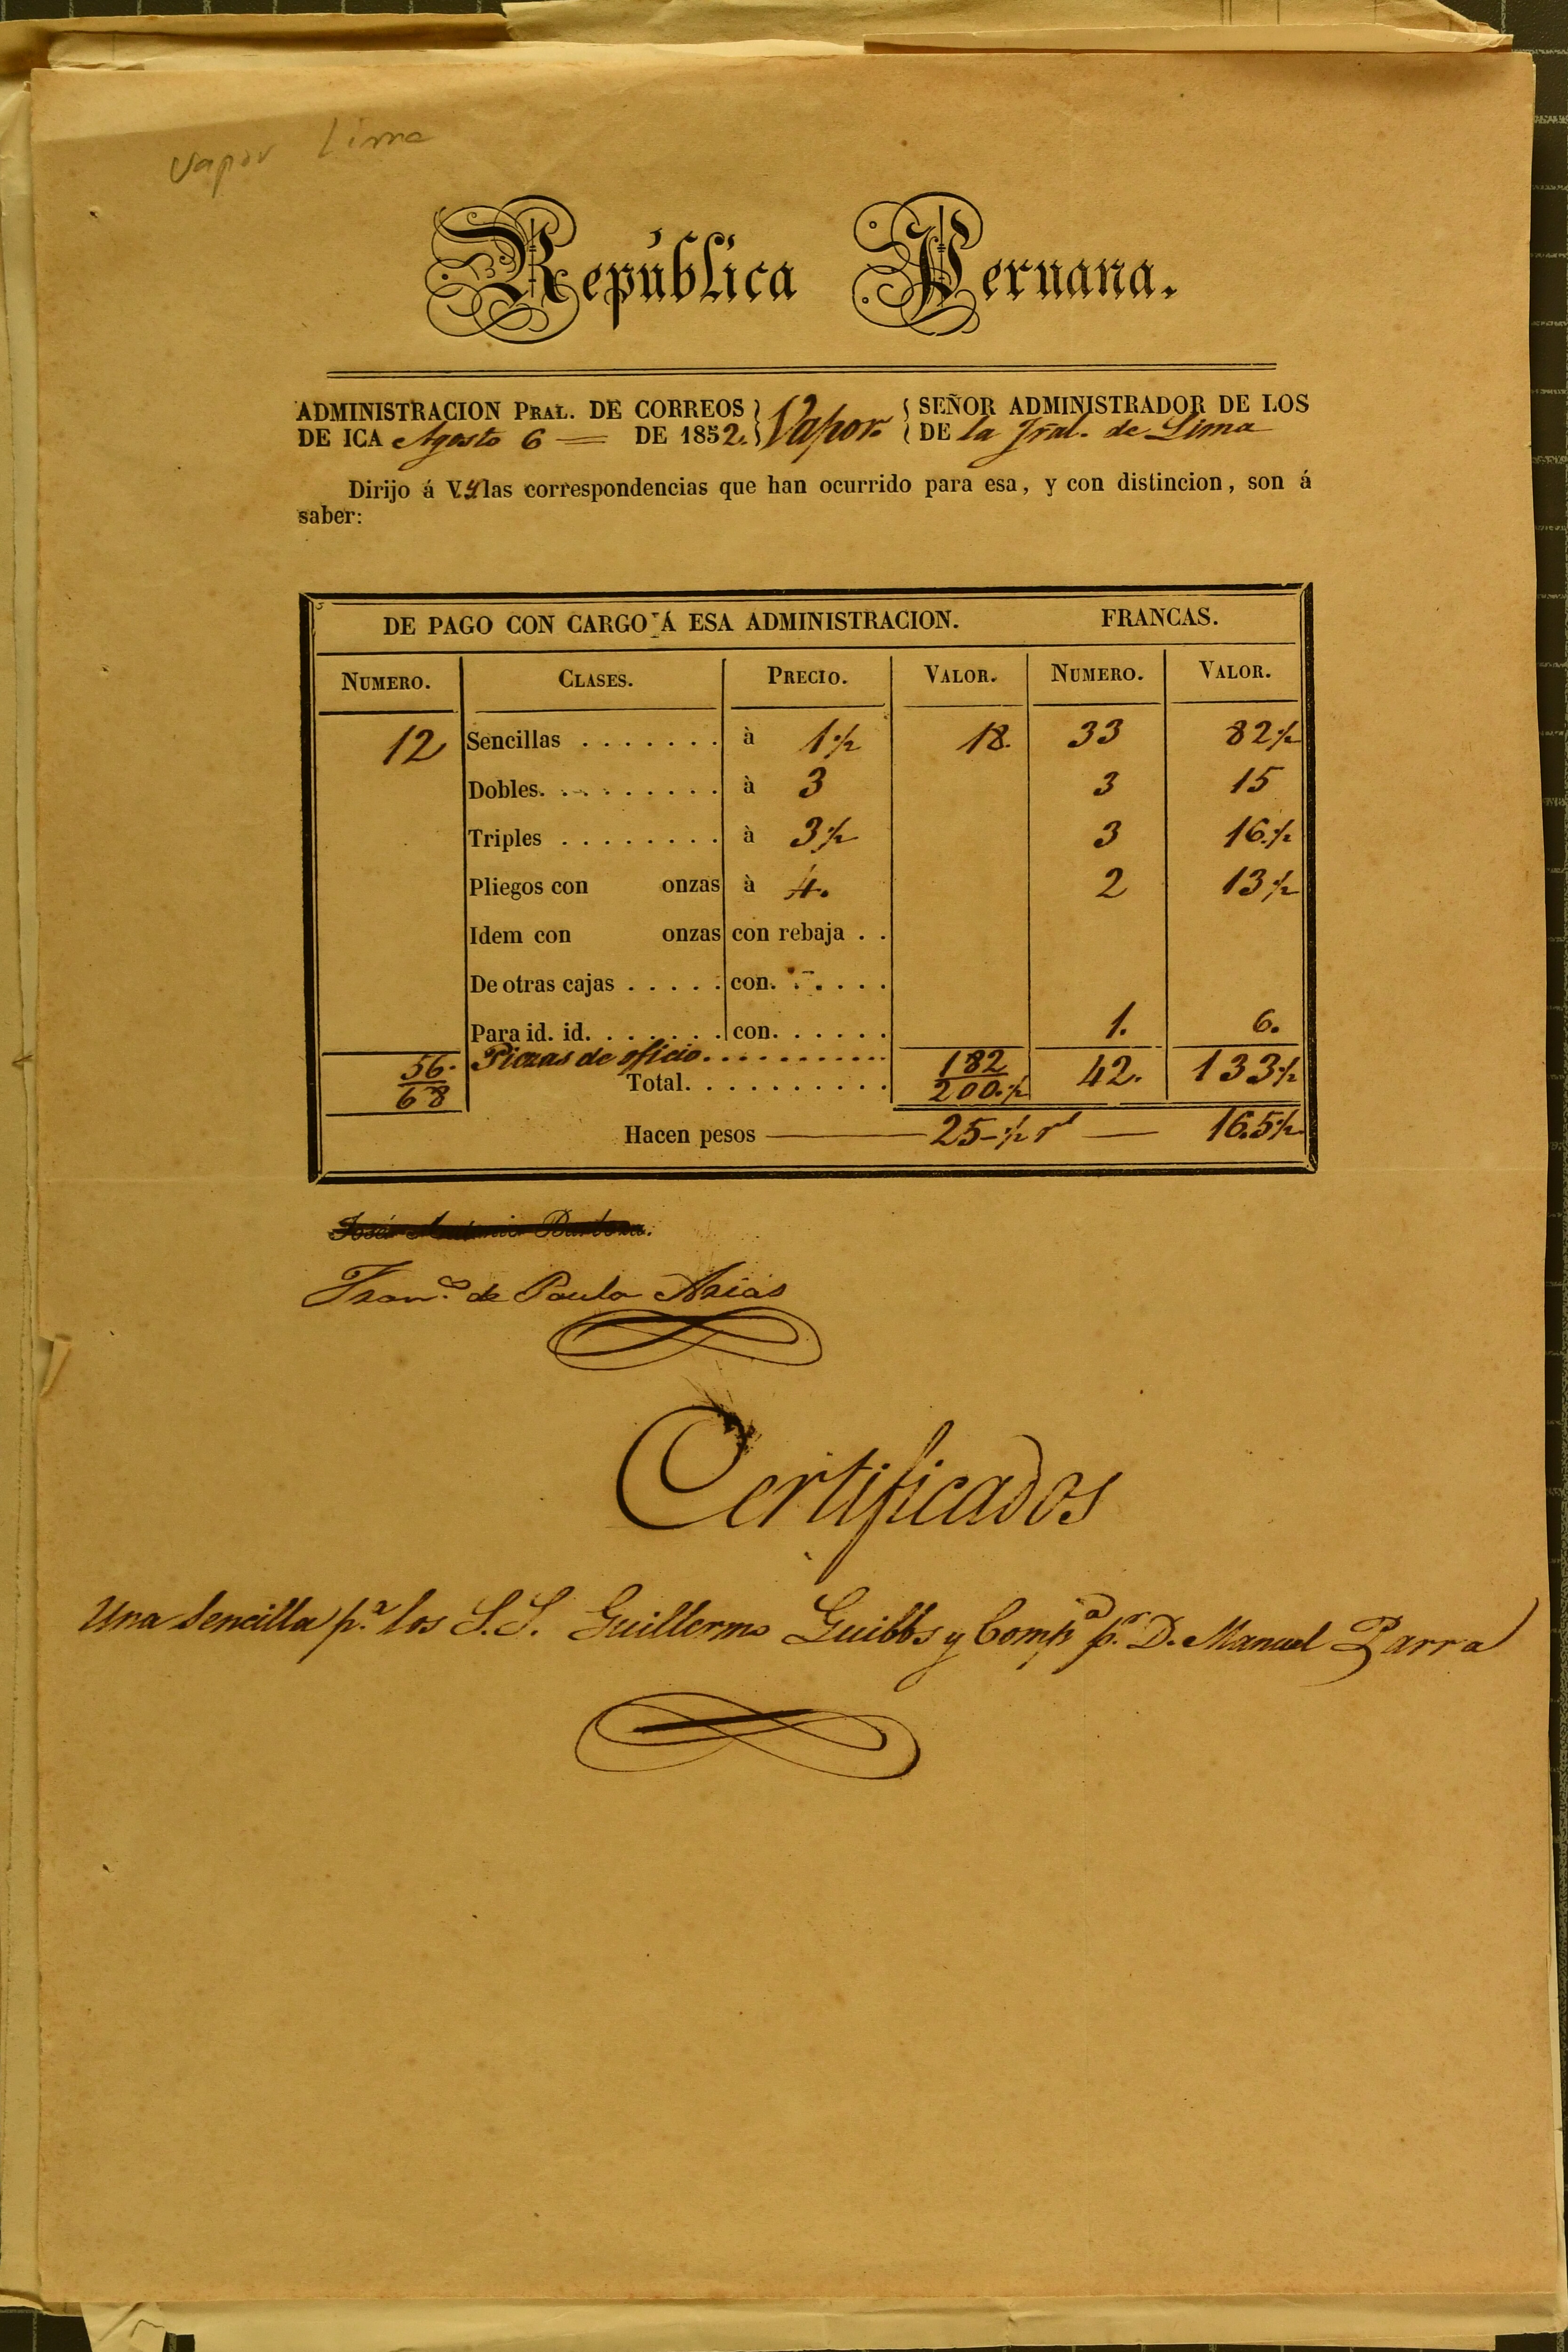 Vapor Lima
República Peruana.
ADMINISTRACION PRAL. DE CORREOS
DE ICA Agosto 6 = DE 1852.
Vapor.
SEÑOR ADMINISTRADOR DE LOS
DE la Jral. de Lima
Dirijo á V. las correspondencias que han ocurrido para esa, y con distincion, son á
saber:
DE PAGO CON CARGO Á ESA ADMINISTRACION. FRANCAS.
NUMERO. CLASES. PRECIO. VALOR. NUMERO. VALOR.
12 Sencillas . . . . . . . à 1 1/2 18. 33 82 1/2
Dobles. . . . . . . . . . à 3 3 15
Triples . . . . . . . . à 3 1/2 3 16. 1/2
Pliegos con onzas à 4. 2 13 1/2
Idem con onzas con rebaja . .
De otras cajas . . . . . con. . . . . .
Para id. id. . . . . . . . con. . . . . . 1. 6.
56. Piezas de oficio. . . . . . . . . . . . 182
68 Total. . . . . . . . . . 200. 1/2 42. 133 1/2
Hacen pesos 25 - 1/2 rl 16.5 1/2
José Antonio Barbosa.
Franco. de Paula Arias
Certificados
Una Sencilla pa. los S.S. Guillermo Guibbs y Compa pr. D. Manuel Parra